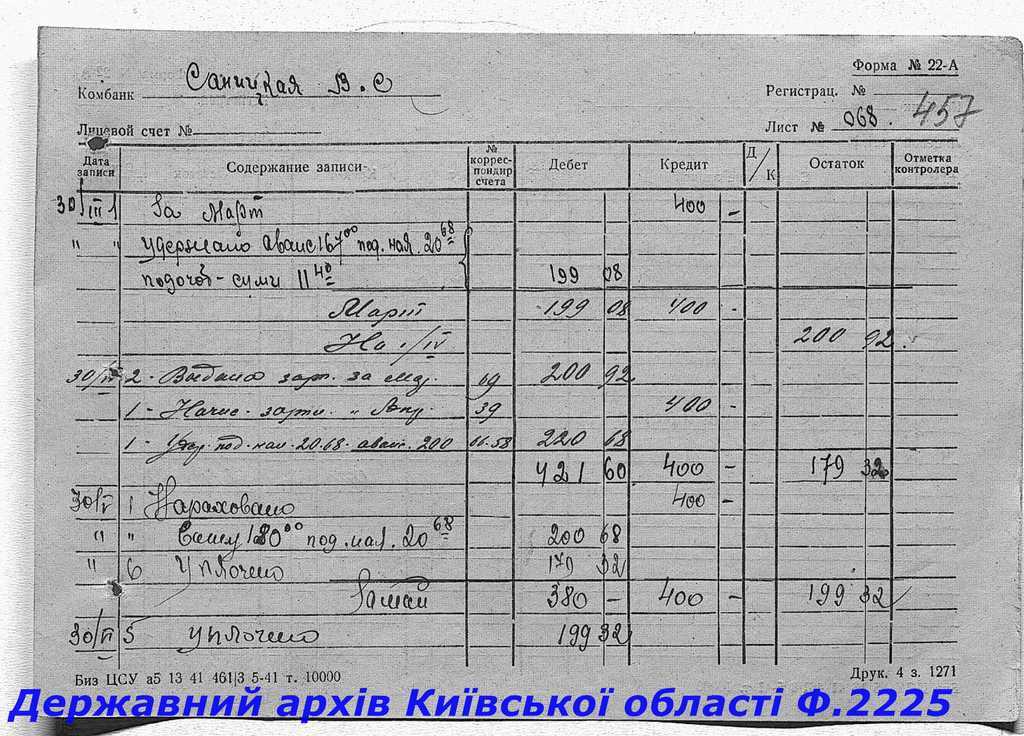 Форма № 22-А
Комбанк Саницкая В.С
Регистрац. №
Лицевой счет №
Лист № 068. 457
Дата записи Содержание записи № корреспондир счета Дебет Кредит Д/К Остаток Отметка контролера
30/III 1 За Март 400 -
" " удержано аванс 167 00 под. нал. 20 68
суми 11 40 199 08
Март 199 08 400 -
На 1/IV 200 92
30/IV 2 - Видано зарп. за Мар. 69 200 92
1 - Начис. зарпл. " Апр. 39 400 -
1 - Удер. под. нал. 20.68. аванс. 200 220 68
421 60 400 - 179 32
30/V 1 Нараховано 400 -
" " 180 00 под. нал. 20 68 200 68
" 6 Уплочено 179 32
За май 380 - 400 - 199 32
30/VI 5 уплочено 199 32
Биз ЦСУ а5 13 41 461|3 5-41 т. 10000
Друк. 4 з. 1271
Державний архів Київської області Ф.2225